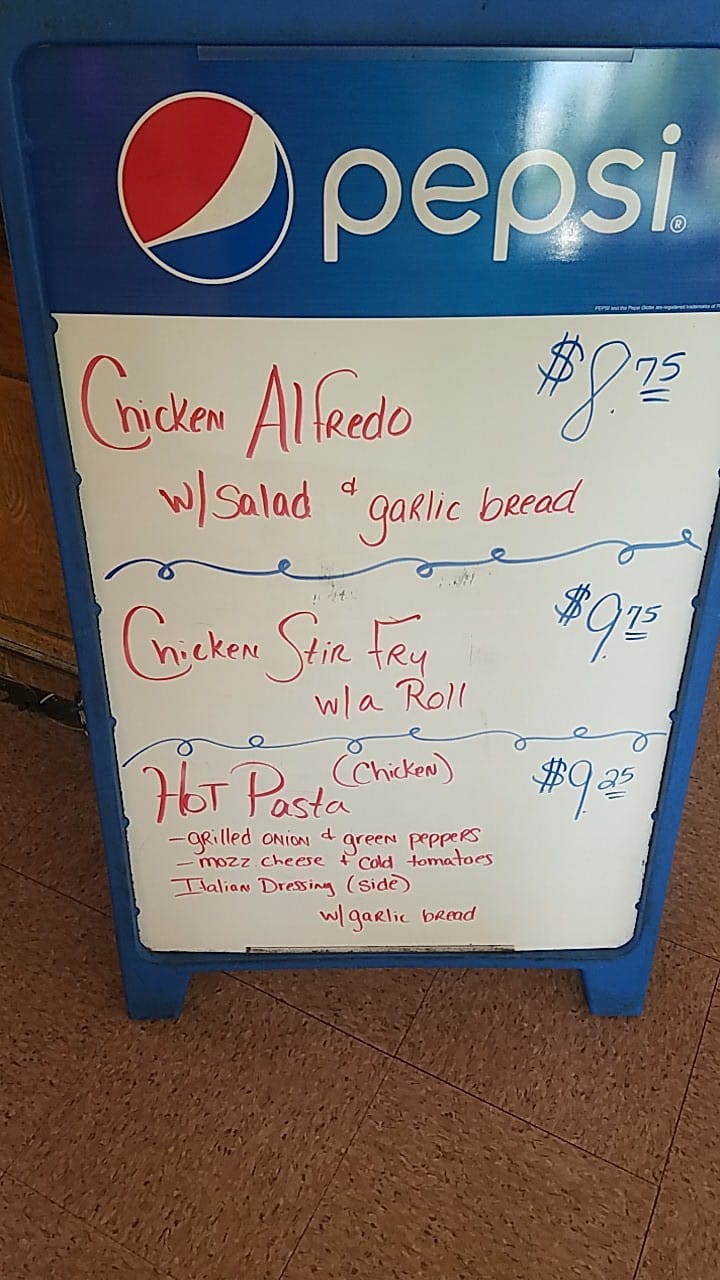 pepsi®
PEPSI and the Pepsi Globe are registered trademarks of
Chicken Alfredo $8.75
w/ Salad & garlic bread
Chicken Stir Fry $9.75
w/a Roll
Hot Pasta (Chicken) $9.25
- grilled onion & green peppers
- mozz. cheese + cold tomatoes
Italian Dressing (side)
w/ garlic bread